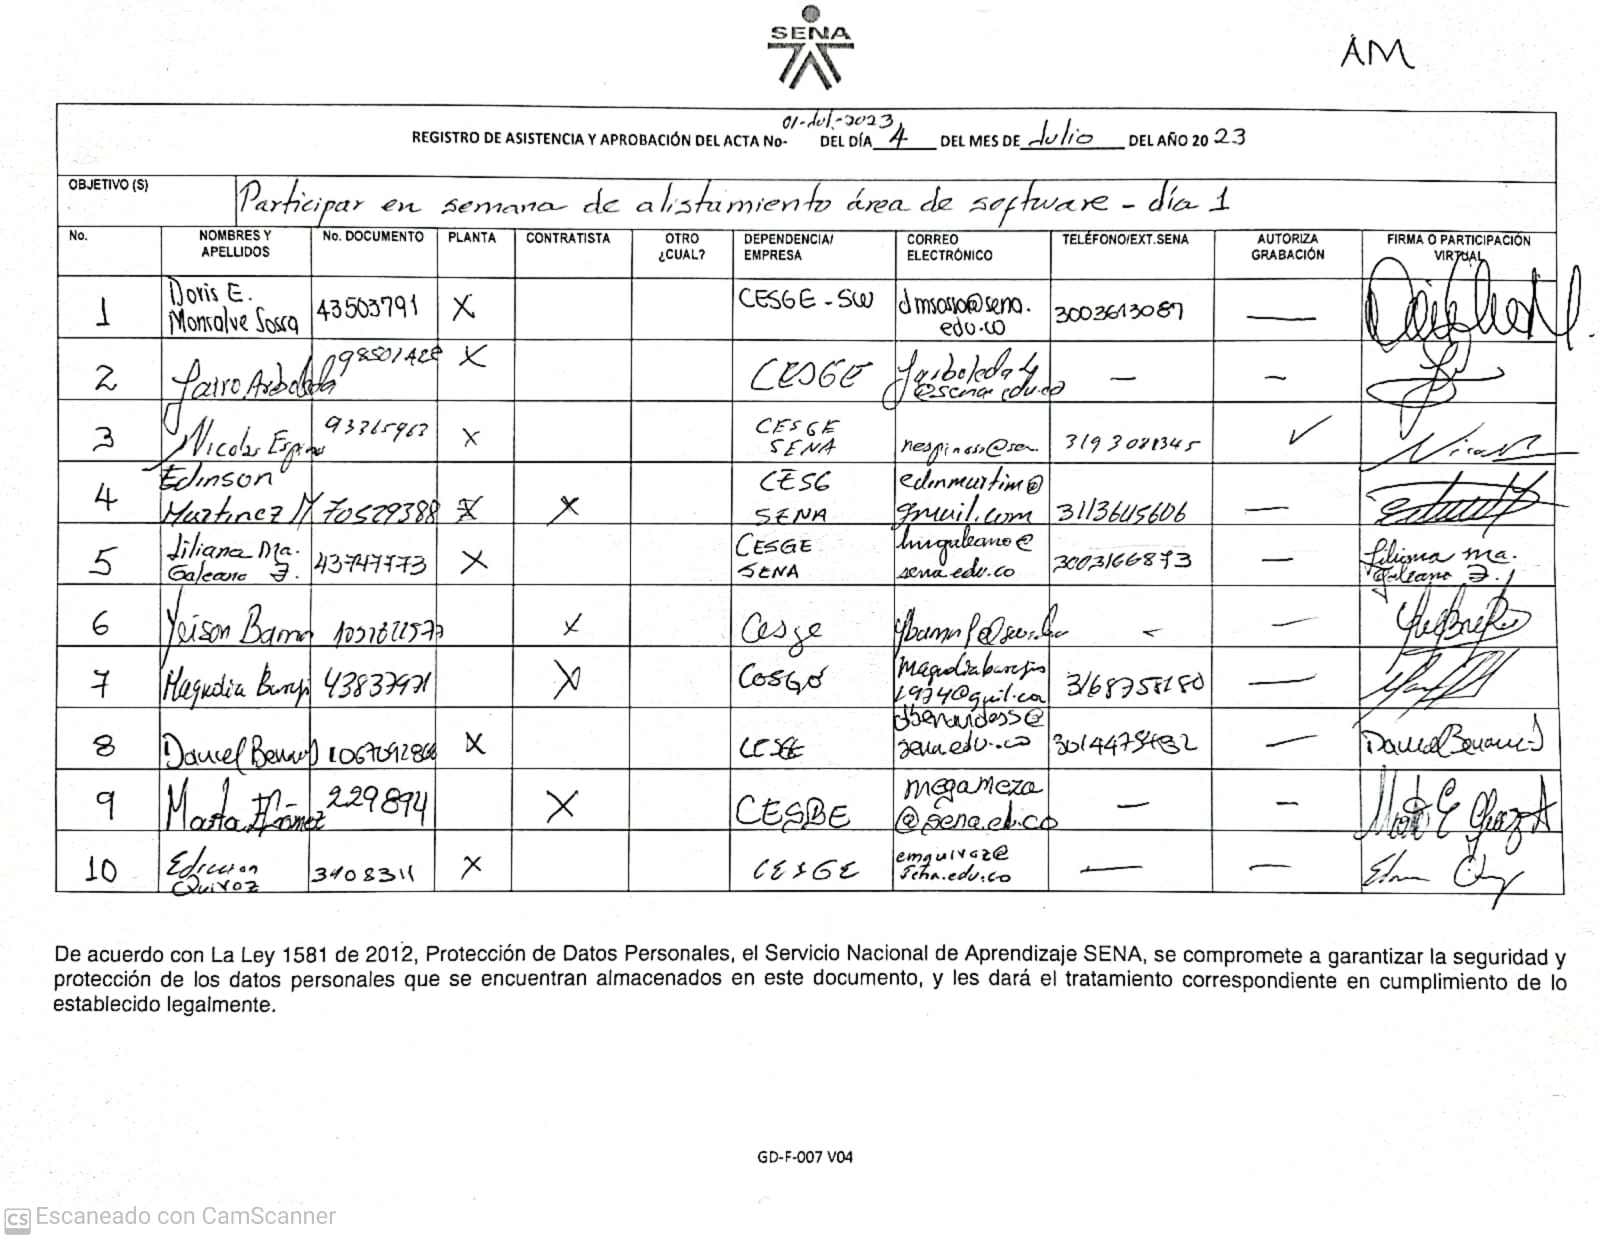 SENA
AM
REGISTRO DE ASISTENCIA Y APROBACIÓN DEL ACTA No- 01-Jul-2023 DEL DÍA 4 DEL MES DE Julio DEL AÑO 2023
OBJETIVO (S) Participar en semana de alistamiento área de software - día 1
No. NOMBRES Y APELLIDOS No. DOCUMENTO PLANTA CONTRATISTA OTRO ¿CUAL? DEPENDENCIA/ EMPRESA CORREO ELECTRÓNICO TELÉFONO/EXT.SENA AUTORIZA GRABACIÓN FIRMA O PARTICIPACIÓN VIRTUAL
1 Doris E. Monsalve Sossa 43503791 X CESGE-SW dmsossa@sena.edu.co 3003613087 —
2 Jairo Arboleda 98501428 X CESGE jarboleda4@sena.edu.co — —
3 Nicolas Espinosa 93365963 X CESGE SENA nespinoso@sen. 3193081345 ✓
4 Edinson Martinez M 70529388 X X CESG SENA edinmartim@gmail.com 3113645606 —
5 Liliana Ma. Galeano Z. 43747773 X CESGE SENA lmgaleano@sena.edu.co 3003166873 — Liliana Ma. Galeano Z.
6 Yeison X Cesge — —
7 Magnolia 43837971 X 3168758180 —
8 Daniel X CESGE @sena.edu.co —
9 Marta 229894 X CESGE megameza@sena.ed.co — —
10 Edicson Quiroz 3408311 X CESGE emquiroz@sena.edu.co — —
De acuerdo con La Ley 1581 de 2012, Protección de Datos Personales, el Servicio Nacional de Aprendizaje SENA, se compromete a garantizar la seguridad y
protección de los datos personales que se encuentran almacenados en este documento, y les dará el tratamiento correspondiente en cumplimiento de lo
establecido legalmente.
GD-F-007 V04
CS Escaneado con CamScanner